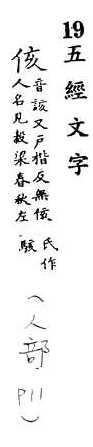 19五經文字
侅音該又戶楷反無侅
人名見穀梁春秋左
氏作
駭
(人部 P11)